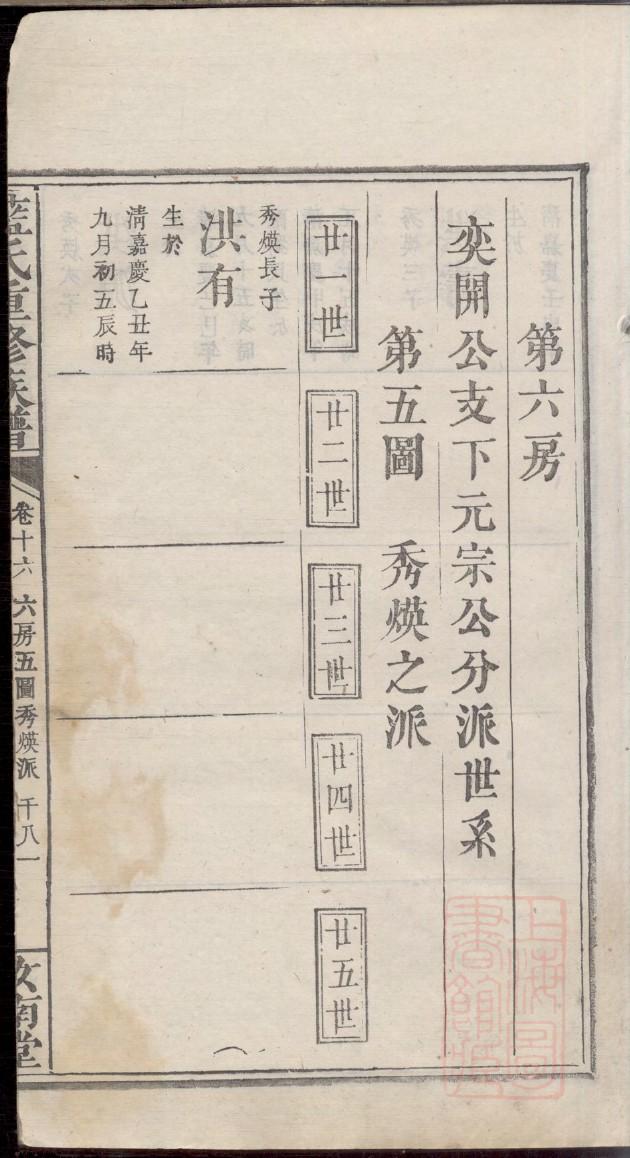 第六房
奕開公支下元宗公分派世系
第五圖　秀煐之派
廿一世
廿二世
廿三世
廿四世
廿五世
秀煐長子
洪有
生於
清嘉慶乙丑年
九月初五辰時
藍氏重修族譜
卷十六　六房五圖秀煐派　千八一
汝南堂
上海圖書館藏